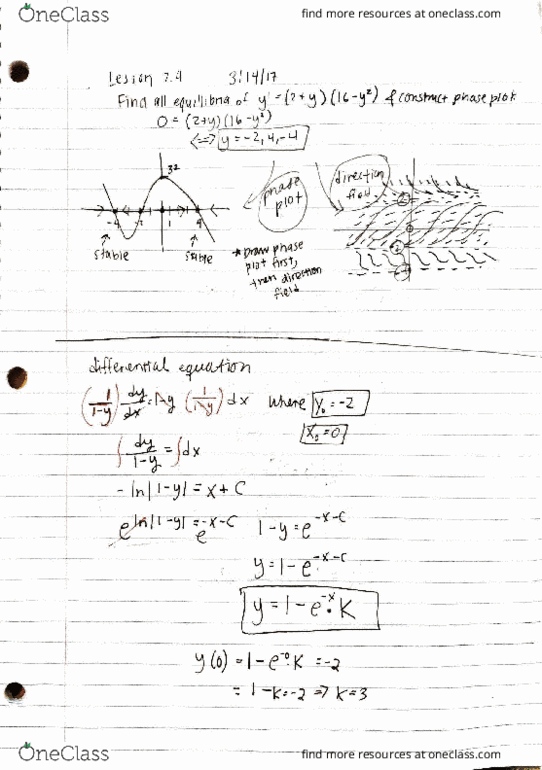 OneClass
find more resources at oneclass.com
Lession 2.4 3/14/17
Find all equilibria of y' = (2+y)(16-y²) & construct phase plot
0 = (2+y)(16-y²)
<=> y = -2, 4, -4
32
-4 -2 1 4
stable stable
phase plot
direction field
* Draw phase plot first, then direction field
differential equation
(1/1-y) dy/dx = 1-y (1/1-y) dx where y₀ = -2
x₀ = 0
∫ dy/1-y = ∫dx
-ln|1-y| = x + C
e^ln|1-y| = e^-x-C 1-y = e^-x-C
y = 1 - e^-x-C
y = 1 - e^-x · K
y(0) = 1 - e^-0 · K = -2
= 1 - K = -2 => K = 3
OneClass
find more resources at oneclass.com